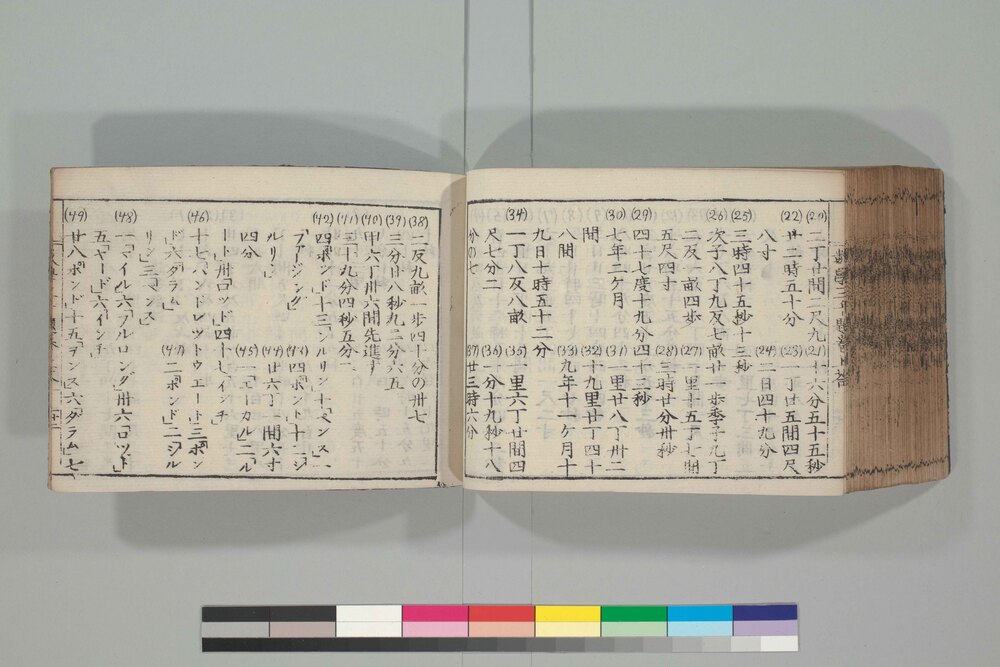 (20) 二丁廿間二尺九 (21) 十六分五十五秒
(22) 廿二時五十分 (23) 一丁廿五間四尺
八寸 (24) 二日四十九分
(25) 三時四十五秒十三秒
(26) 次子八丁九反七畝廿一歩季子九丁
二反一畝四歩 (27) 一里十五丁七間
五尺四寸 (28) 三時廿分卅秒
(29) 四十七度十九分四十三秒
(30) 七年二ケ月 (31) 一里廿八丁卅二
間 (32) 十九里廿丁四十
八間 (33) 九年十一ケ月十
九日十時五十二分
(34) 一丁八反八畝 (35) 一里六丁廿間四
尺七分二 (36) 一分十九秒十八
分の七 (37) 廿三時六分
(38) 二反九畝一歩四十分の卅七
(39) 三分廿八秒九二分六五
(40) 甲六丁卅六間先進ス
(41) 二十九分四秒五分一
(42) 四「ポンド」十三「シルリング」十「ペンス」一
「フアージング」 (43) 四「ポンド」十二「シ
ルリン」 (44) 廿六丁一間六寸
四分 (45)
一「」卅「ロッド」四十七「インチ」
(46) 十七「ハンドレットウエート」三「ポン
ド」六「ダラム」 (47) 二「ポンド」二「シル
リン」三「ペンス」
(48) 一「マイル」六「フルロング」卅六「ロッド」
五「ヤード」六「インチ」
(49) 廿八「ポンド」十五「ヲンス」六「ダラム」七